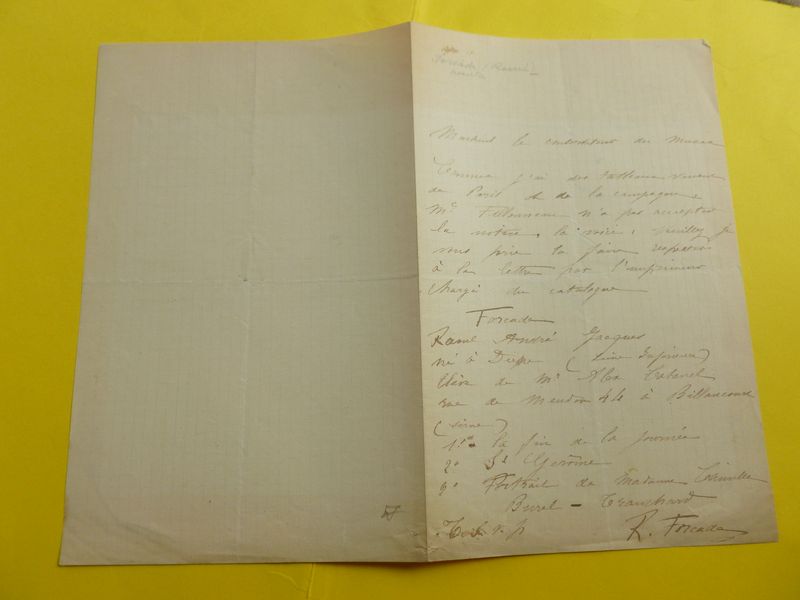 Forcade (Raoul)
Monsieur le conservateur du Musée
Comme j'ai des tableaux venant
de Paris et de la campagne,
Mr n'a pas accepté
la notice, la voici, veuillez je
vous prie la faire
à la lettre par l'imprimeur
chargé du catalogue
Forcade
Raoul André Jacques
né à Dieppe (Seine Inférieure)
Elève de Mr Alex Cabanel
rue de Meudon 44 à Billancourt
(seine)
1º La fin de la journée
2º St Gérôme
3º Portrait de Madame
Burel -
T. S. v. p
R. Forcade